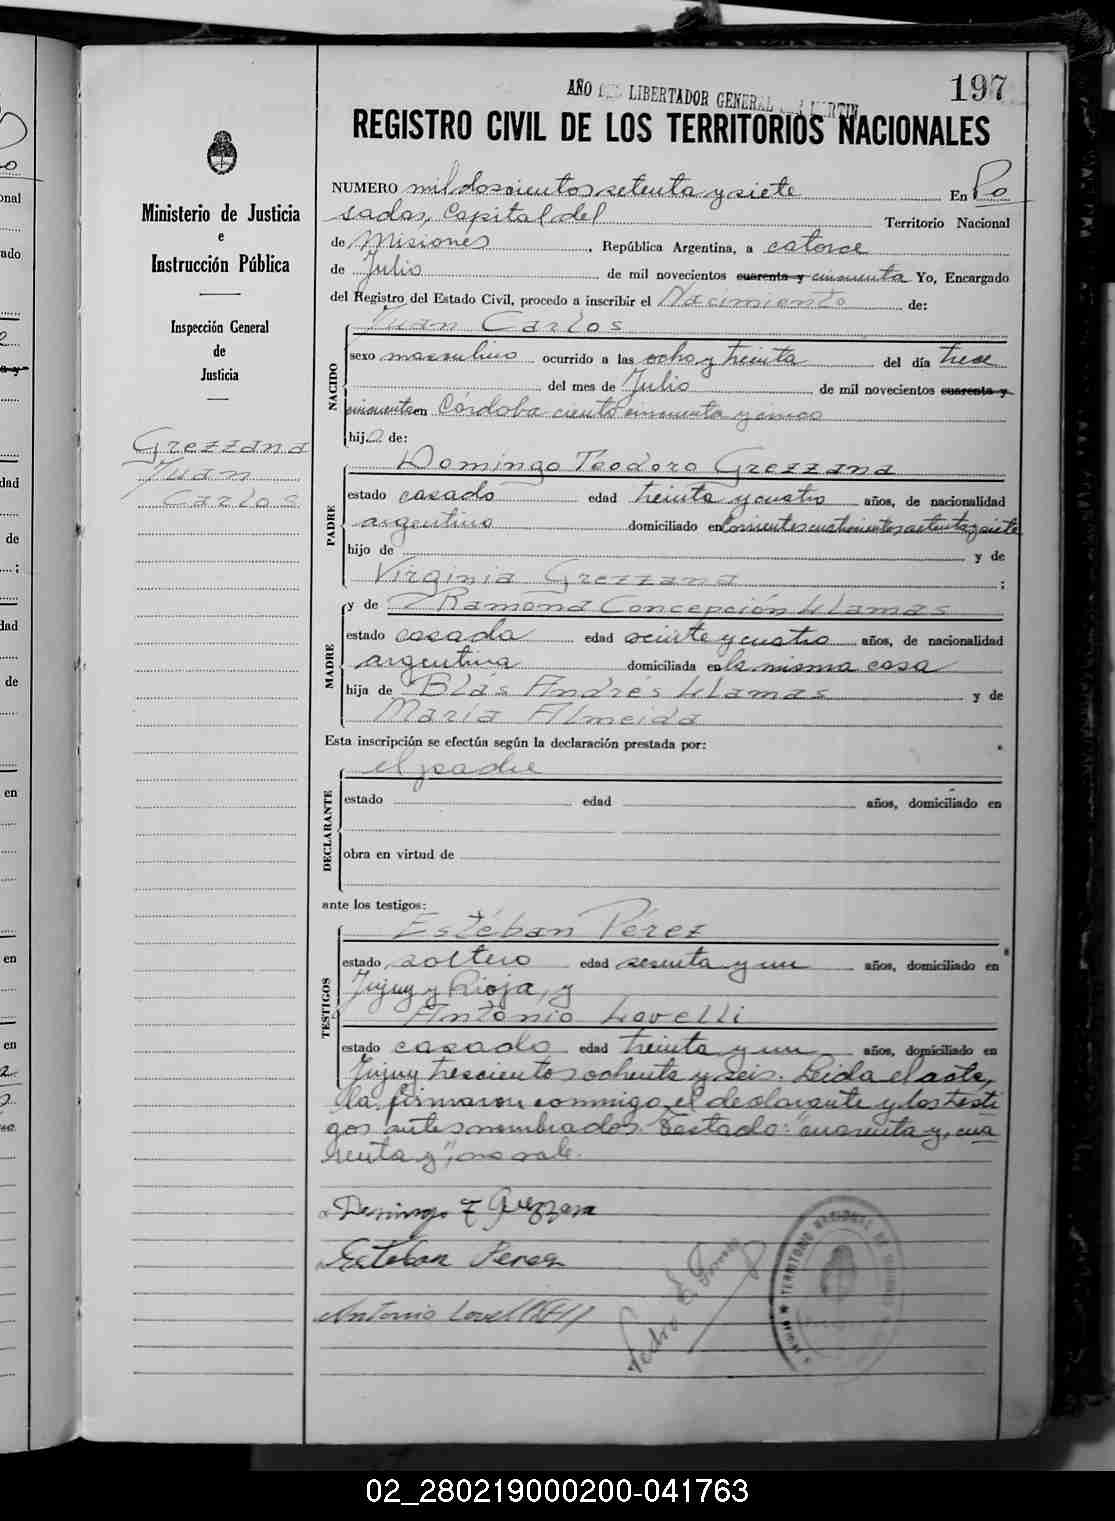 197
AÑO DEL LIBERTADOR GENERAL SAN MARTIN
REGISTRO CIVIL DE LOS TERRITORIOS NACIONALES
Ministerio de Justicia
e
Instrucción Pública
Inspección General
de
Justicia
Grezzana
Juan
Carlos
NUMERO mil doscientos setenta y siete En Po
sadas, Capital del Territorio Nacional
de Misiones, República Argentina, a catorce
de Julio de mil novecientos cuarenta y cincuenta Yo, Encargado
del Registro del Estado Civil, procedo a inscribir el Nacimiento de:
NACIDO
Juan Carlos
sexo masculino ocurrido a las ocho y treinta del día trece
del mes de Julio de mil novecientos cuarenta y
cincuenta en Córdoba ciento cincuenta y cinco
hijo de:
PADRE
Domingo Teodoro Grezzana
estado casado edad treinta y cuatro años, de nacionalidad
argentino domiciliado en Corrientes cuatrocientos setenta y siete
hijo de y de
Virginia Grezzana ;
MADRE
y de Ramona Concepción Llamas
estado casada edad veinte y cuatro años, de nacionalidad
argentina domiciliada en la misma casa
hija de Blás Andrés Llamas y de
María Almeida
Esta inscripción se efectúa según la declaración prestada por:
DECLARANTE
el padre
estado edad años, domiciliado en
obra en virtud de
ante los testigos:
TESTIGOS
Estéban Pérez
estado soltero edad sesenta y un años, domiciliado en
Jujuy y Rioja, y
Antonio Lovelli
estado casado edad treinta y un años, domiciliado en
Jujuy trescientos ochenta y seis. Leida el acta,
la firmaron conmigo el declarante y los testi
gos antes nombrados. Testado: "cuarenta y, cua
renta y", no vale.
Domingo T Grezzana
Esteban Perez
Antonio Lovelli
Pedro E.
TERRITORIO NACIONAL DE MISIONES
02_280219000200-041763